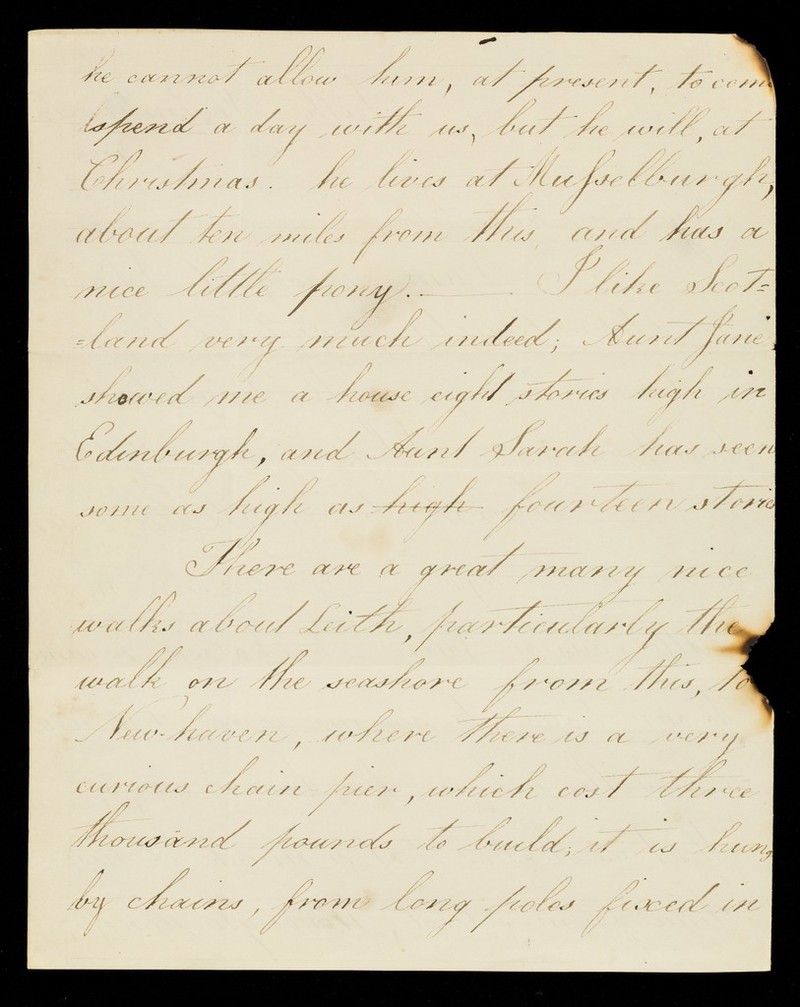 he cannot allow him, at present, to come
spend a day with us, but he will, at
Christmas. he lives at Musselburgh,
about ten miles from this, and has a
nice little pony. — I like Scot=
=land very much indeed; Aunt Jane,
showed me a house eight stories high in
Edinburgh, and Aunt Sarah has seen
some as high as high fourteen stories
There are a great many nice
walks about Leith, particularly the
walk on the seashore from this, to
New-haven, where there is a very
curious chain pier, which cost three
thousand pounds to build; it is hung
by chains, from long poles fixed in